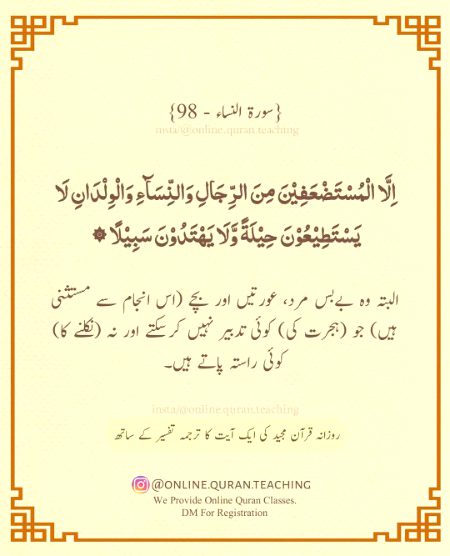 {سورۃ النساء - 98}
insta/@online.quran.teaching
اِلَّا الْمُسْتَضْعَفِيْنَ مِنَ الرِّجَالِ وَالنِّسَآءِ وَالْوِلْدَانِ لَا
يَسْتَطِيْعُوْنَ حِيْلَةً وَّلَا يَهْتَدُوْنَ سَبِيْلًا ۞
البتہ وہ بےبس مرد، عورتیں اور بچے (اس انجام سے مستثنی
ہیں) جو (ہجرت کی) کوئی تدبیر نہیں کرسکتے اور نہ (نکلنے کا)
کوئی راستہ پاتے ہیں۔
insta/@online.quran.teaching
روزانہ قرآن مجید کی ایک آیت کا ترجمہ تفسیر کے ساتھ
@ONLINE.QURAN.TEACHING
We Provide Online Quran Classes.
DM For Registration